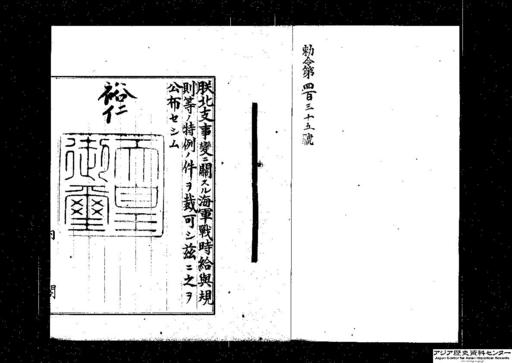 勅令第四百三十五號
朕北支事變ニ關スル海軍戰時給與規
則等ノ特例ノ件ヲ裁可シ茲ニ之ヲ
公布セシム
裕仁
天皇
御璽
内
閣
アジア歴史資料センター
Japan Center for Asian Historical Records